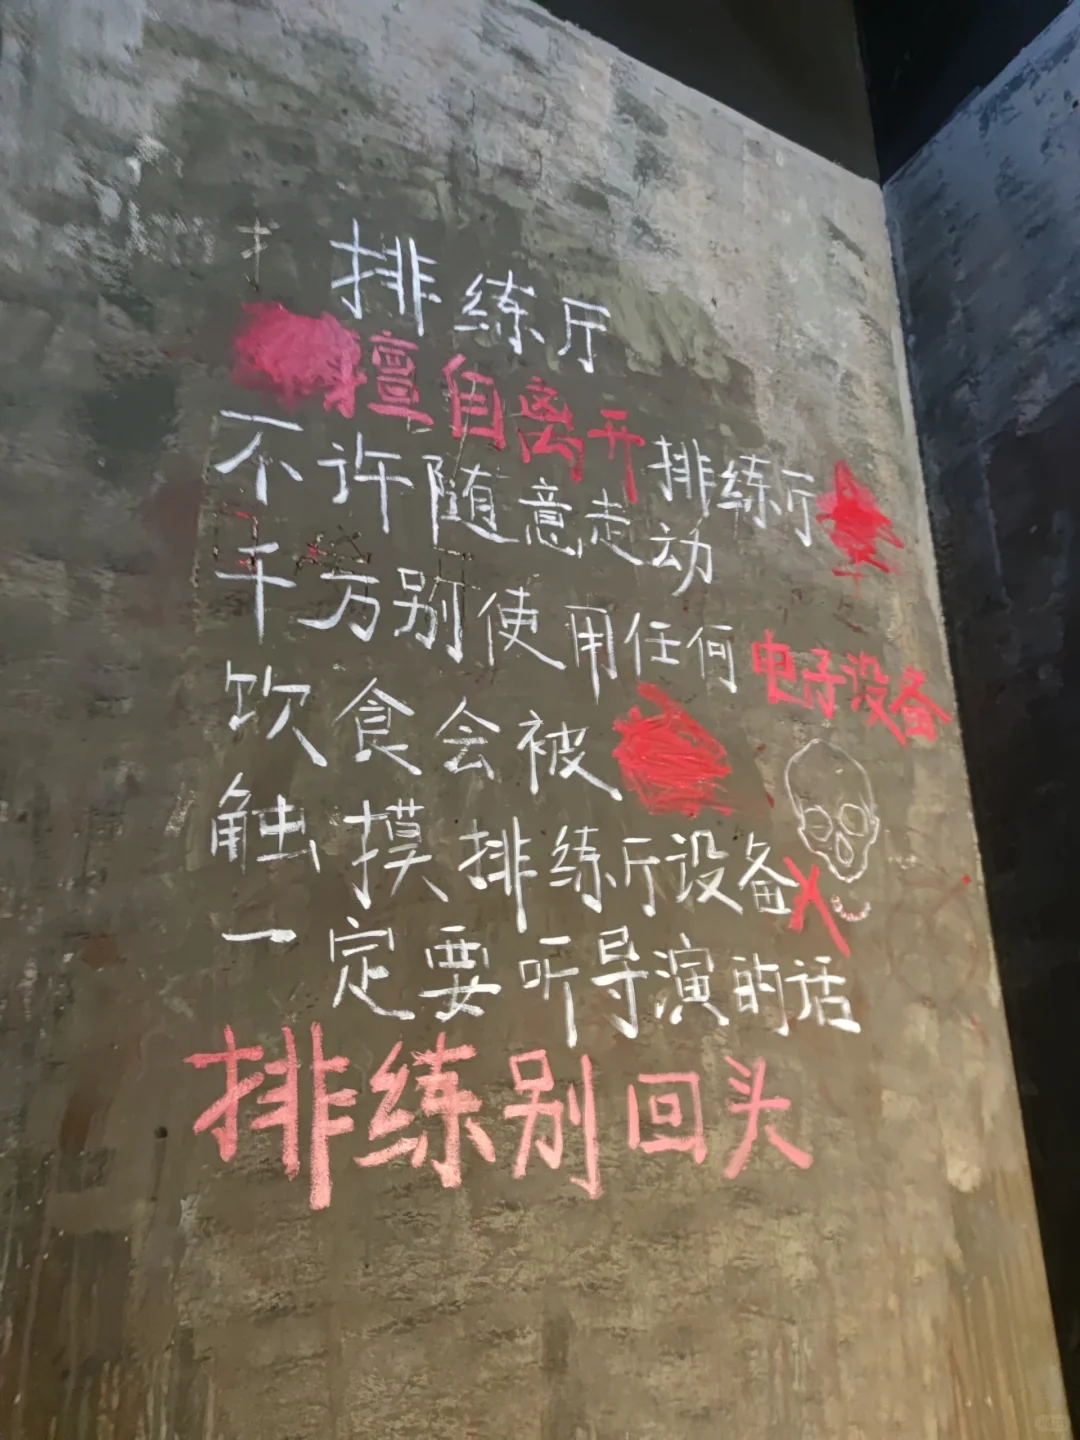 排练厅
擅自离开排练厅
不许随意走动
千万别使用任何电子设备
饮食会被
触摸排练厅设备X
一定要听导演的话
排练别回头